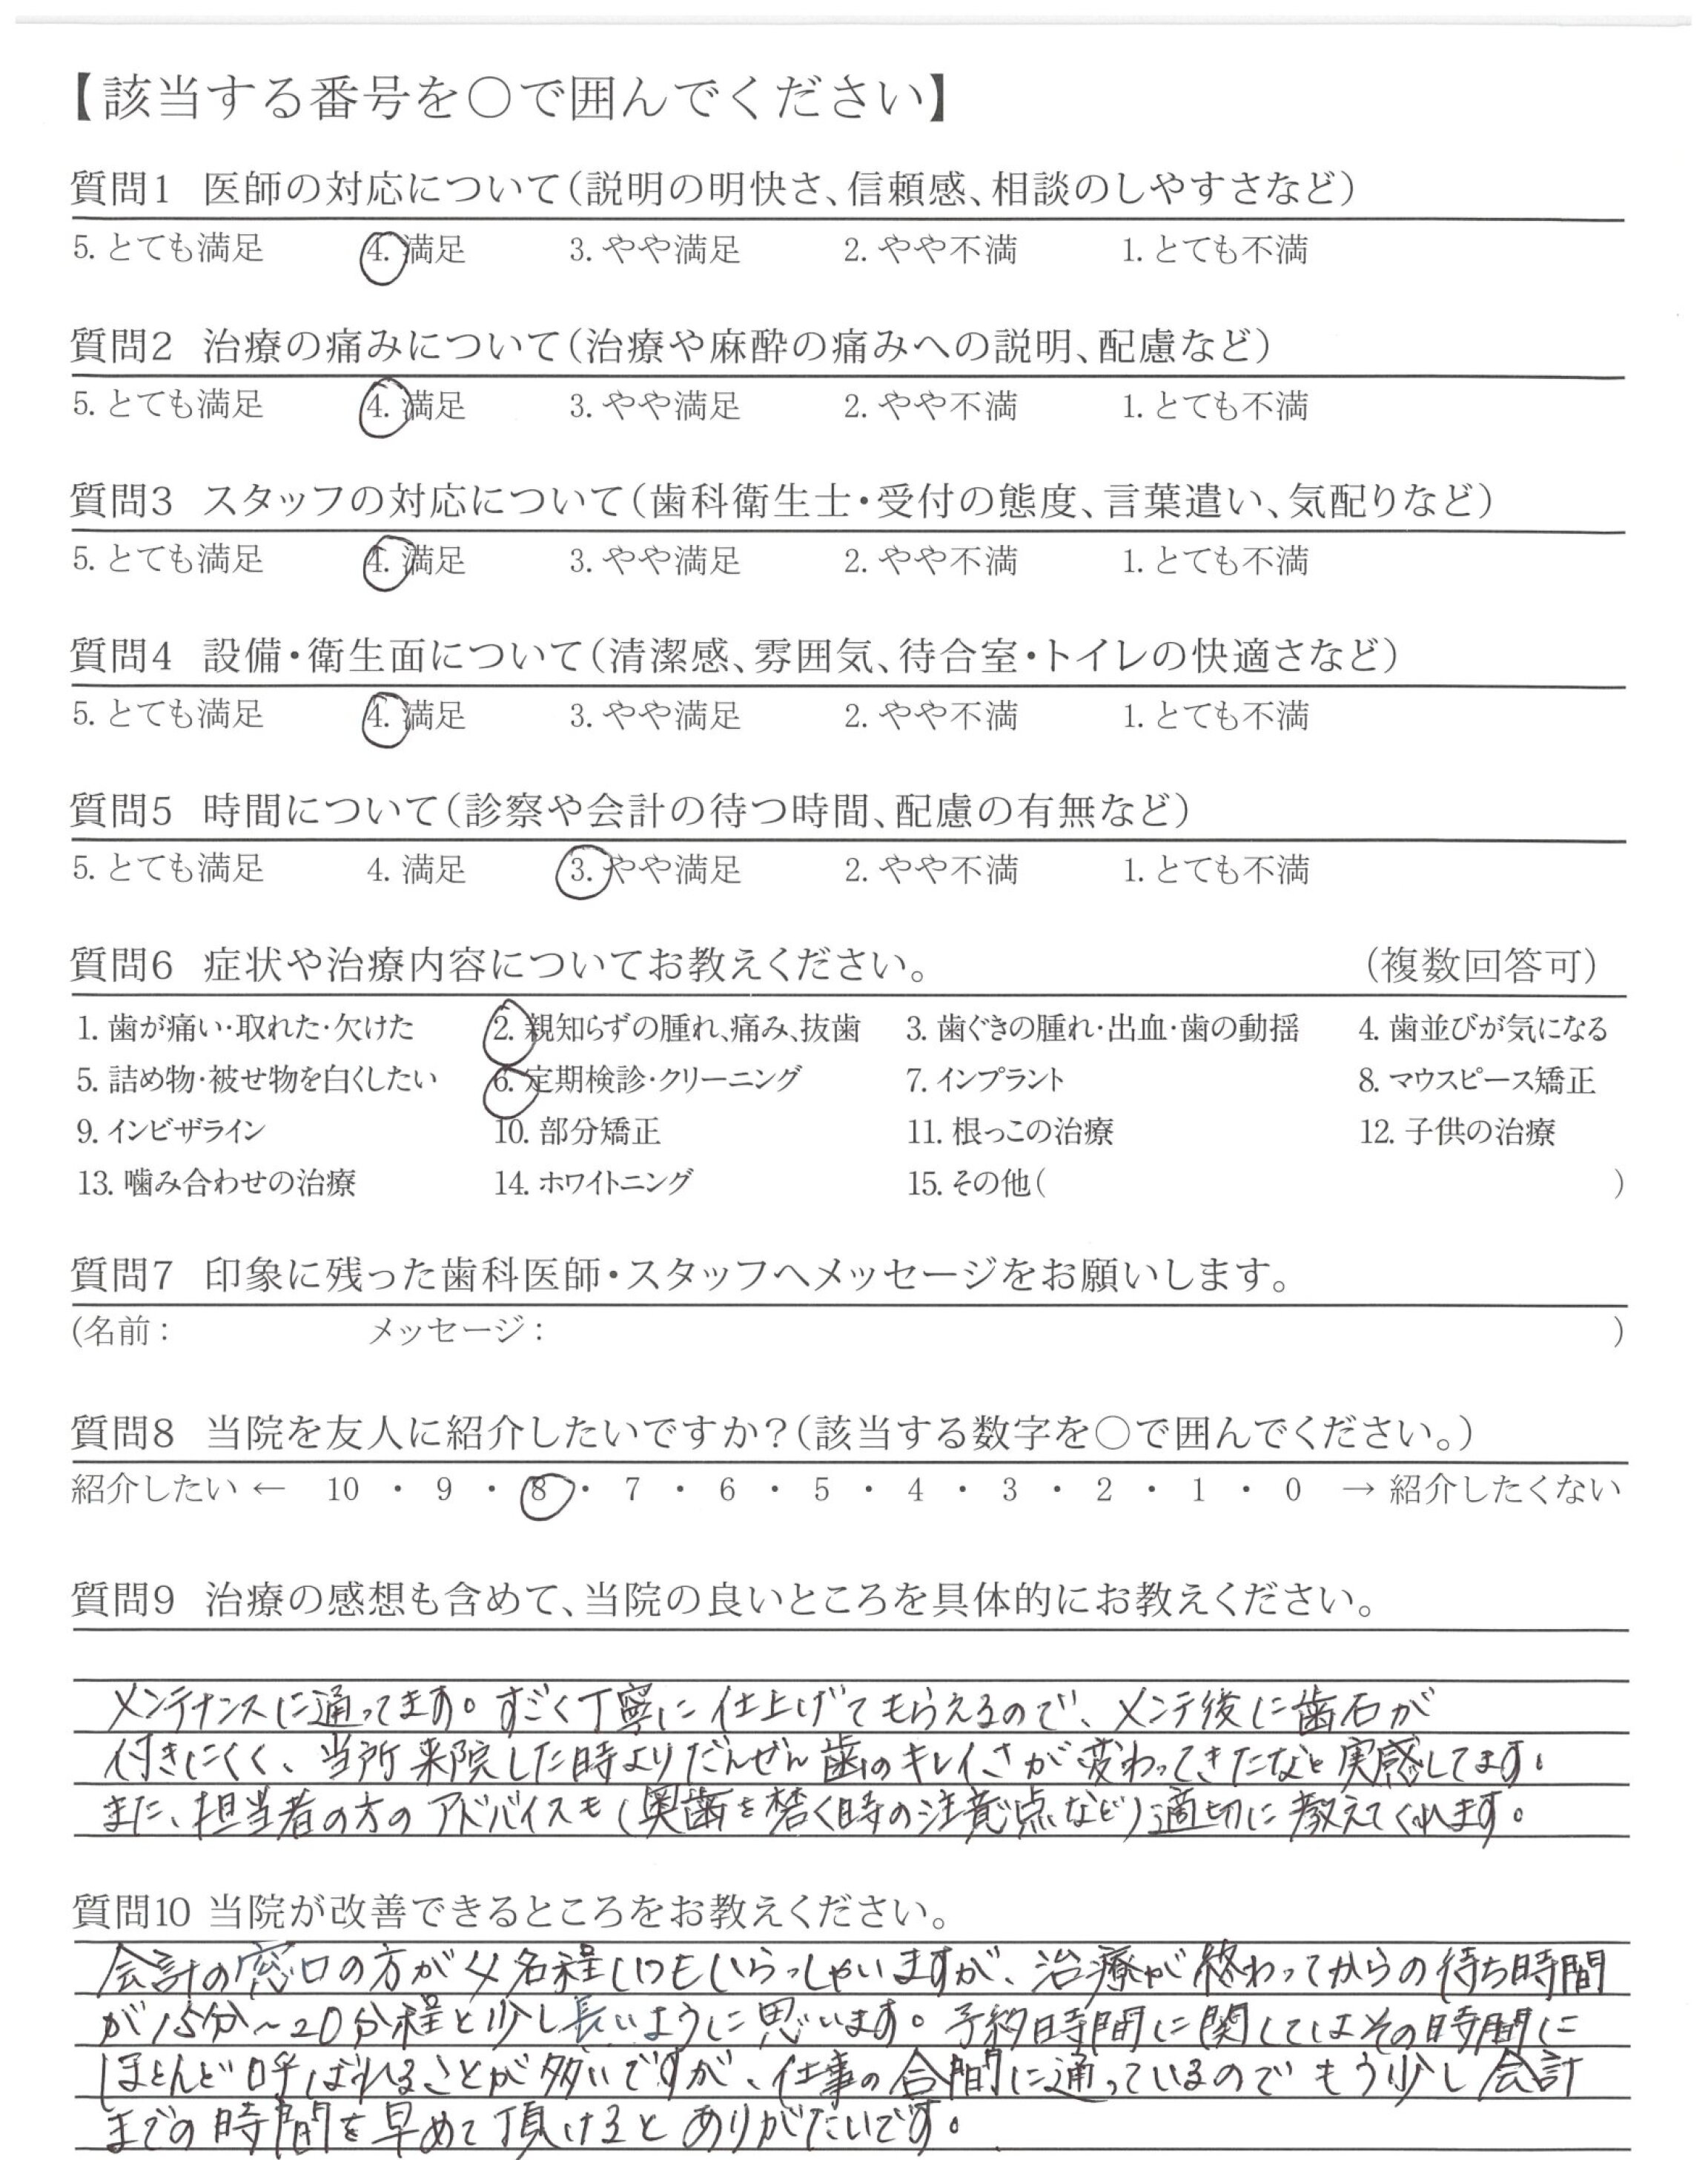 【該当する番号を〇で囲んでください】
質問1 医師の対応について（説明の明快さ、信頼感、相談のしやすさなど）
5. とても満足 4. 満足 3. やや満足 2. やや不満 1. とても不満
質問2 治療の痛みについて（治療や麻酔の痛みへの説明、配慮など）
5. とても満足 4. 満足 3. やや満足 2. やや不満 1. とても不満
質問3 スタッフの対応について（歯科衛生士・受付の態度、言葉遣い、気配りなど）
5. とても満足 4. 満足 3. やや満足 2. やや不満 1. とても不満
質問4 設備・衛生面について（清潔感、雰囲気、待合室・トイレの快適さなど）
5. とても満足 4. 満足 3. やや満足 2. やや不満 1. とても不満
質問5 時間について（診察や会計の待つ時間、配慮の有無など）
5. とても満足 4. 満足 3. やや満足 2. やや不満 1. とても不満
質問6 症状や治療内容についてお教えください。 （複数回答可）
1. 歯が痛い・取れた・欠けた 2. 親知らずの腫れ、痛み、抜歯 3. 歯ぐきの腫れ・出血・歯の動揺 4. 歯並びが気になる
5. 詰め物・被せ物を白くしたい 6. 定期検診・クリーニング 7. インプラント 8. マウスピース矯正
9. インビザライン 10. 部分矯正 11. 根っこの治療 12. 子供の治療
13. 噛み合わせの治療 14. ホワイトニング 15. その他（ ）
質問7 印象に残った歯科医師・スタッフへメッセージをお願いします。
（名前： メッセージ： ）
質問8 当院を友人に紹介したいですか？（該当する数字を〇で囲んでください。）
紹介したい ← 10 ・ 9 ・ 8 ・ 7 ・ 6 ・ 5 ・ 4 ・ 3 ・ 2 ・ 1 ・ 0 → 紹介したくない
質問9 治療の感想も含めて、当院の良いところを具体的にお教えください。
メンテナンスに通ってます。すごく丁寧に仕上げてもらえるので、メンテ後に歯石が
付きにくく、当所来院した時よりだんぜん歯のキレイさが変わってきたなと実感してます。
また、担当者の方のアドバイスも（奥歯を磨く時の注意点など）適切に教えてくれます。
質問10 当院が改善できるところをお教えください。
会計の窓口の方が4名程いつもいらっしゃいますが、治療が終わってからの待ち時間
が15分～20分程と少し長いように思います。予約時間に関してはその時間に
ほとんど呼ばれることが多いですが、仕事の合間に通っているのでもう少し会計
までの時間を早めて頂けるとありがたいです。